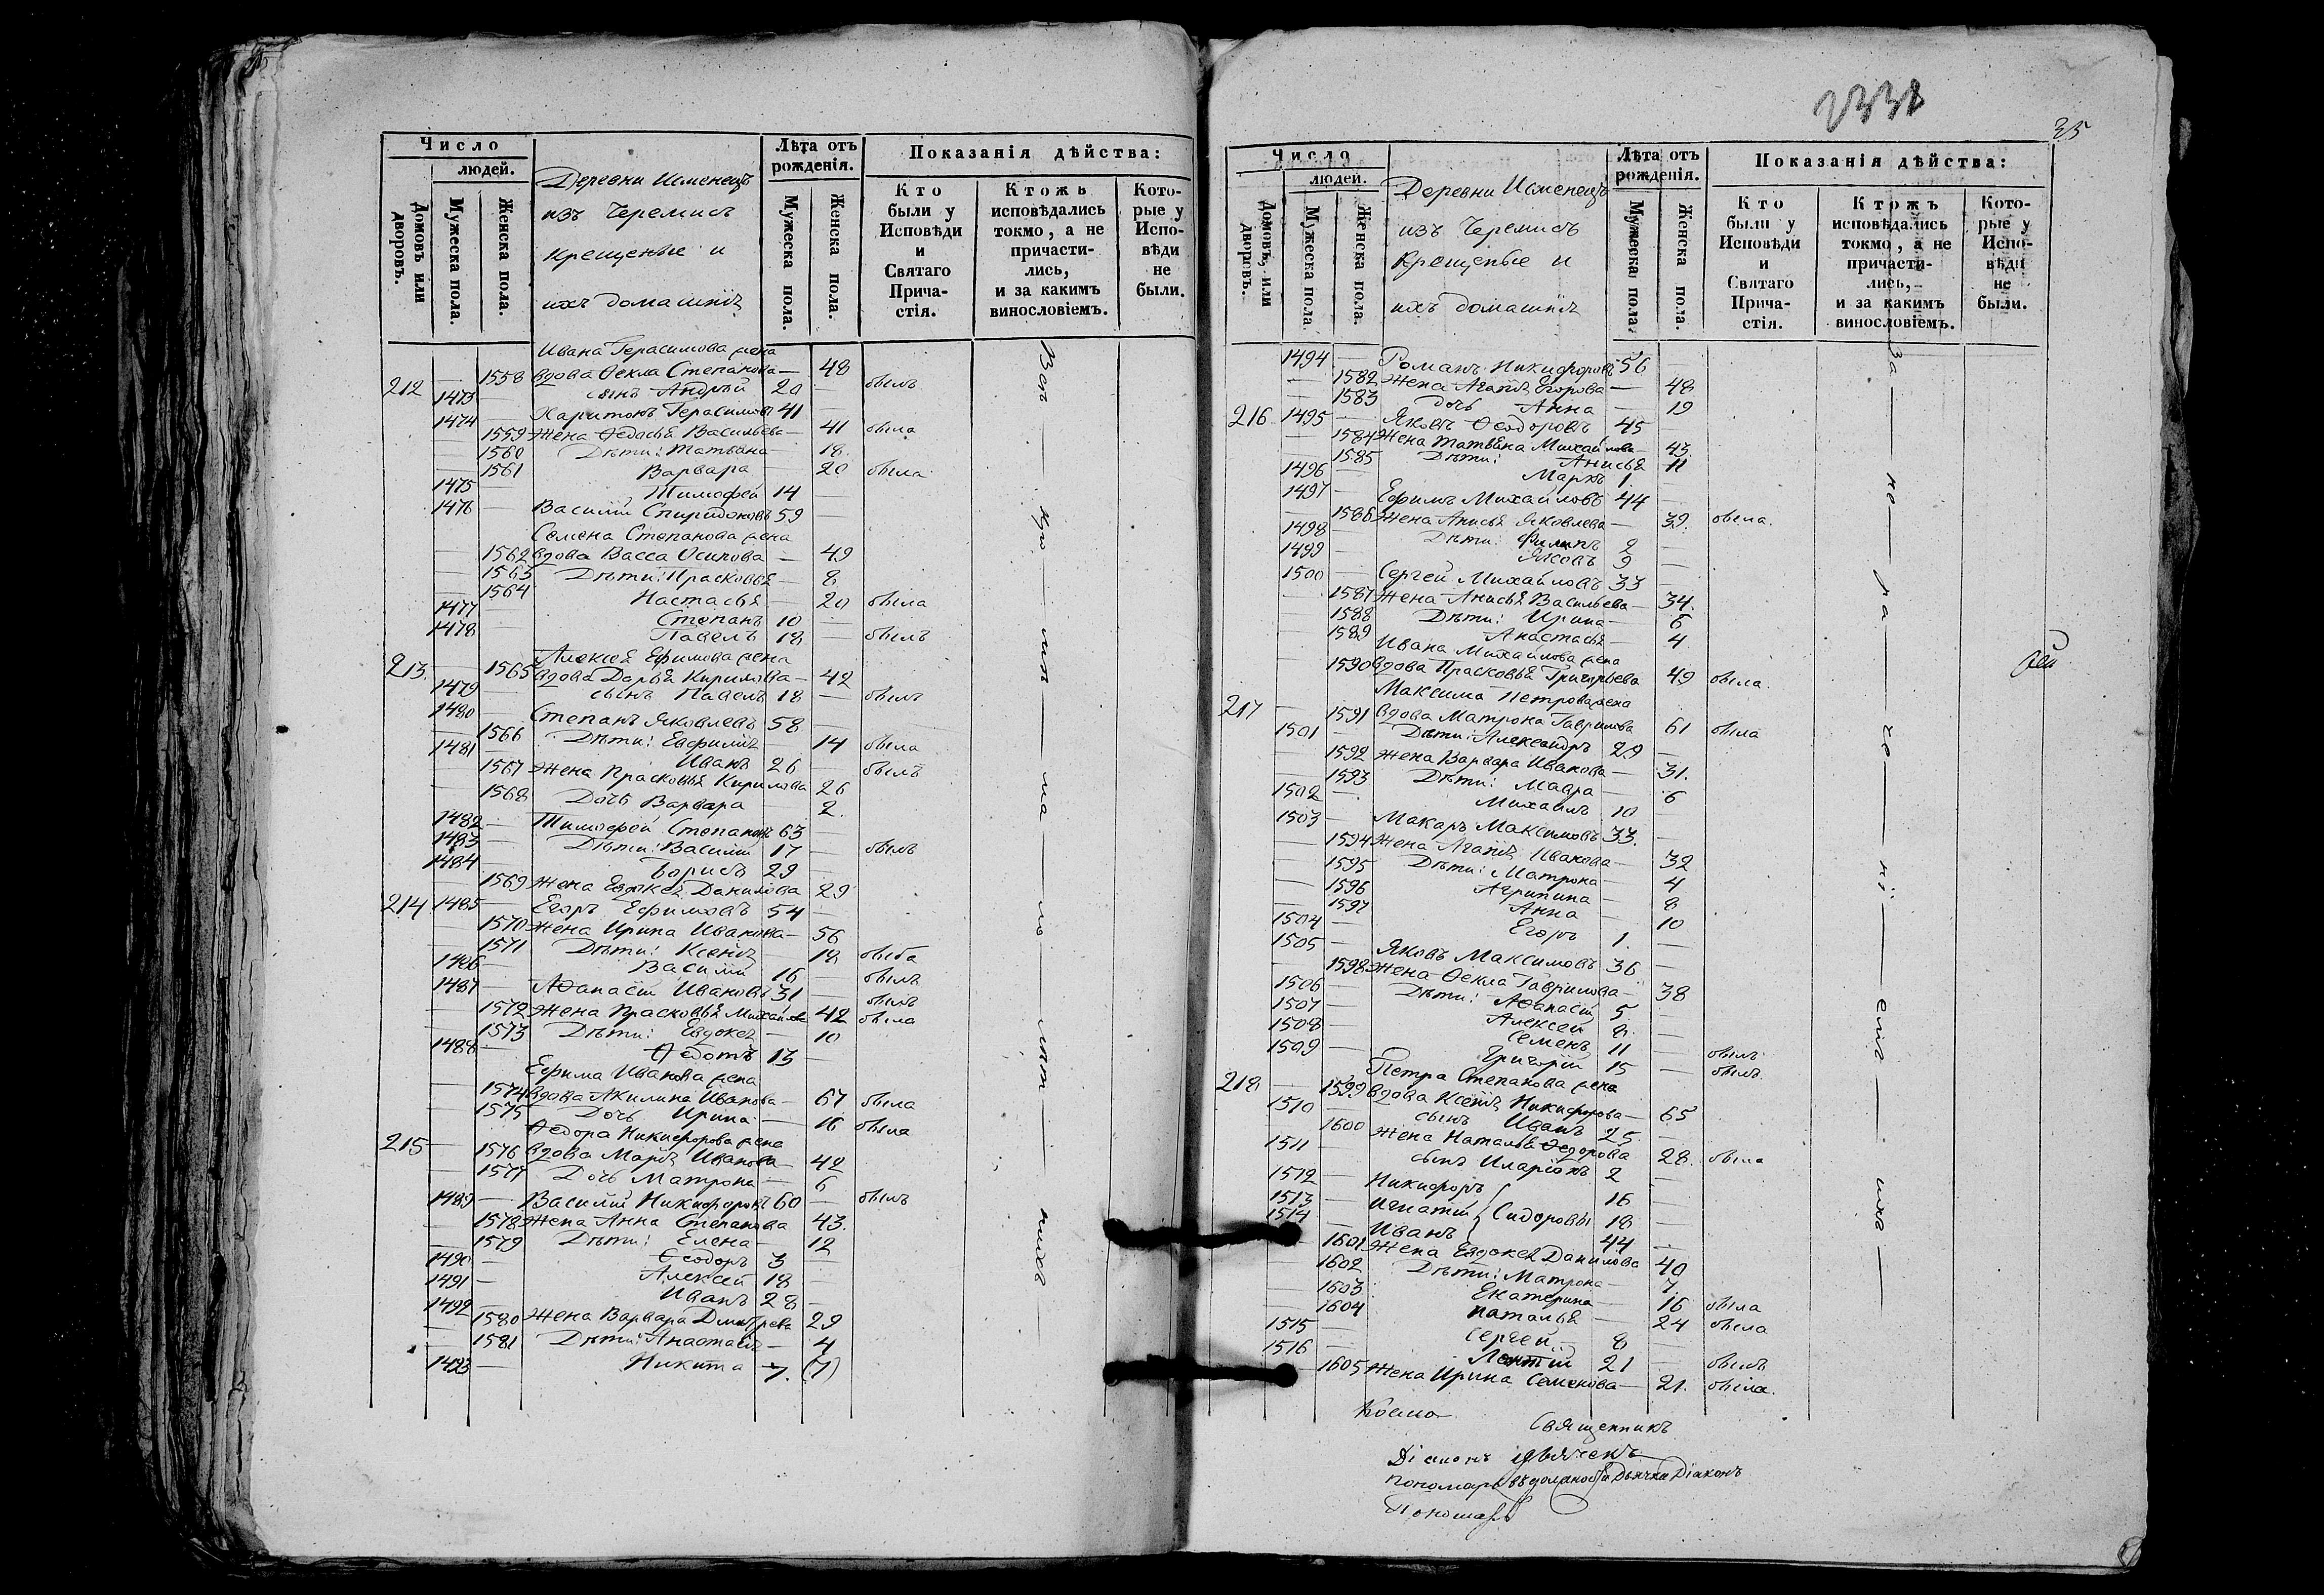 Число
людей.
Домовъ или дворовъ.
Мужеска пола.
Женска пола.
Деревни Исменецъ
изъ Черемисъ
крещеные и
ихъ домашніе
Лѣта отъ рожденія.
Мужеска пола.
Женска пола.
Показанія дѣйства:
Кто были у Исповѣди и Святаго Прича-стія.
Ктожъ исповѣдались токмо, а не причасти-лись, и за какимъ винословіемъ.
Кото-рые у Испо-вѣди не были.
Ивана Герасимова жена
212 — 1558 вдова Ѳекла Степанова — 48
1473 — сынъ Андрей 20 — былъ
1474 — Харитонъ Герасимовъ 41 —
— 1559 Жена Ѳедосья Васильева — 41 была
— 1560 Дѣти: Татьяна — 18.
— 1561 Варвара — 20 была
1475 — Тимофей 14 —
1476 — Василій Спиридоновъ 59 —
Семена Степанова жена
— 1562 вдова Васса Осипова — 49
— 1563 Дѣти: Прасковья — 8
— 1564 Настасья — 20 была
1477 — Степанъ 10 —
1478 — Павелъ 18 — былъ
Алексея Ефимова жена
213. — 1565 вдова Дарья Кирилова — 42
1479 — сынъ Павелъ 18 — былъ
1480 — Степанъ Яковлевъ 58 —
— 1566 Дѣти: Евфимія — 14 была
1481 — Иванъ 26 — былъ
— 1567 Жена Прасковья Кирилова 26
— 1568 Дочь Варвара — 2.
1482 — Тимофей Степановъ 63 —
1483 — Дѣти: Василій 17 — былъ
1484 — Борисъ 29 —
— 1569 Жена Евдокея Данилова 29
214 1485 — Егоръ Ефимовъ 54 —
— 1570 Жена Ирина Иванова — 56
— 1571 Дѣти: Ксенія — 18 была
1486 — Василій 16 — былъ
1487 — Аѳанасій Ивановъ 31 — былъ
— 1572 Жена Прасковья Михайлова 42 была
— 1573 Дѣти: Евдокея — 10
1488 — Ѳедотъ 13 —
Ефима Иванова жена
— 1574 вдова Акилина Иванова — 67 была
— 1575 Дочь Ирина — 16 была
Ѳедора Никифорова жена
215 — 1576 вдова Марья Иванова — 42
— 1577 Дочь Матрона — 6
1489 — Василій Никифоровъ 60 — былъ
— 1578 Жена Анна Степанова 43.
— 1579 Дѣти: Елена — 12
1490 — Ѳеодоръ 3 —
1491 — Алексей 18 —
1492 — Иванъ 28 —
— 1580 Жена Варвара Дмитрева 29
— 1581 Дѣти: Анастасія — 4
1493 — Никита 7. (7)
2338
35
Число
людей.
Домовъ, или дворовъ.
Мужеска пола
Женска пола.
Деревни Исменецъ
изъ Черемисъ
Крещеные и
ихъ домашніе
Лѣта отъ рожденія.
Мужеска пола.
Женска пола.
Показанія дѣйства:
Кто были у Исповѣди и Святаго Прича-стія.
Ктожъ исповѣдались токмо, а не причасти-лись, и за какимъ винословіемъ.
Кото-рые у Испо-вѣди не были.
1494 — Романъ Никифоровъ 56 —
— 1582 Жена Агапія Егорова — 48
— 1583 дочь Анна — 19
216 1495 — Яковъ Ѳеодоровъ 45 —
— 1584 Жена Татьяна Михайлова — 43.
— 1585 Дѣти: Анисья — 11
1496 — Маркъ 1.
1497 — Ефимъ Михайловъ 44 —
— 1586 Жена Анисья Яковлева — 39. была.
1498 — Дѣти: Филипъ 2 —
1499 — Яковъ 9 —
1500 — Сергей Михайловъ 33 —
— 1587 Жена Анисья Васильева — 34.
— 1588 Дѣти: Ирина — 6
— 1589 Анастасья — 4
Ивана Михайлова жена
— 1590 вдова Прасковья Григорьева 49 была.
Максима Петрова жена
217 — 1591 вдова Матрона Гаврилова 61 была
1501 — Дѣти: Александръ 29 —
— 1592 Жена Варвара Иванова — 31.
— 1593 Дѣти: Мавра — 6
1502 — Михаилъ 10
1503 — Макаръ Максимовъ 33. —
— 1594 Жена Агапія Иванова — 32
— 1595 Дѣти: Матрона — 4
— 1596 Агрипина — 8
— 1597 Анна — 10
1504 — Егоръ 1. —
1505 — Яковъ Максимовъ 36 —
— 1598 Жена Ѳекла Гаврилова — 38
1506 — Дѣти: Аѳанасій 5 —
1507 — Алексей 8. —
1508 — Семенъ 11 — былъ
1509 — Григорій 15 — былъ.
Петра Степанова жена
218 — 1599 вдова Ксенія Никифорова — 65
1510 — сынъ Иванъ 25. —
— 1600 Жена Наталья Ѳедорова 28. была
1511 — сынъ Иларіонъ 2 —
1512 — Никифоръ 16 —
1513 — Игнатій Сидоровы 18 —
1514 — Иванъ 44 —
— 1601 Жена Евдокея Данилова 40
— 1602 Дѣти: Матрона — 7.
— 1603 Екатерина — 16 была
— 1604 Наталья — 24 была
1515 — Сергей 8 —
1516 — Леонтій 21 — былъ
— 1605 Жена Ирина Семенова — 21. была.
Священникъ
Пономарь въ должности Дьячка Діаконъ
Пономарь